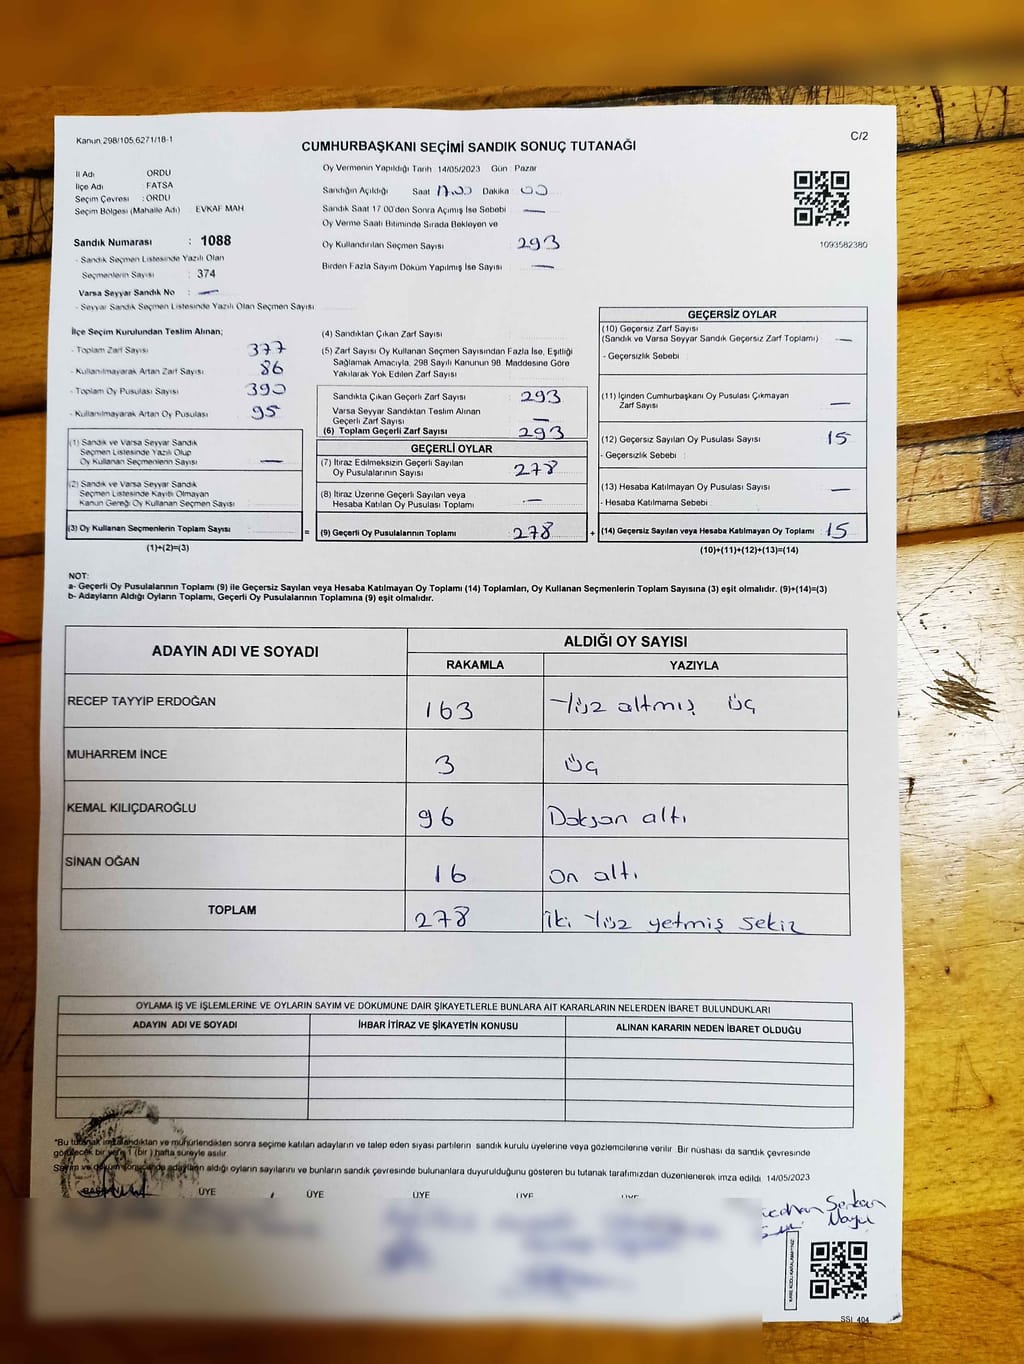 Kanun 298/105,6271/18-1
C/2
CUMHURBAŞKANI SEÇİMİ SANDIK SONUÇ TUTANAĞI
İl Adı ORDU
İlçe Adı FATSA
Seçim Çevresi : ORDU
Seçim Bölgesi (Mahalle Adı) EVKAF MAH
Sandık Numarası : 1088
- Sandık Seçmen Listesinde Yazılı Olan
Seçmenlerin Sayısı : 374
Varsa Seyyar Sandık No : —
- Seyyar Sandık Seçmen Listesinde Yazılı Olan Seçmen Sayısı
Oy Vermenin Yapıldığı Tarih 14/05/2023 Gün : Pazar
Sandığın Açıldığı Saat 17.00 Dakika 00
Sandık Saat 17 00'den Sonra Açımış İse Sebebi —
Oy Verme Saati Bitiminde Sırada Bekleyen ve
Oy Kullandırılan Seçmen Sayısı 293
Birden Fazla Sayım Döküm Yapılmış İse Sayısı —
1093582380
İlçe Seçim Kurulundan Teslim Alınan;
- Toplam Zarf Sayısı 377
- Kullanılmayarak Artan Zarf Sayısı 86
- Toplam Oy Pusulası Sayısı 390
- Kullanılmayarak Artan Oy Pusulası 95
(1) Sandık ve Varsa Seyyar Sandık
Seçmen Listesinde Yazılı Olup
Oy Kullanan Seçmenlerin Sayısı —
(2) Sandık ve Varsa Seyyar Sandık
Seçmen Listesinde Kayıtlı Olmayan
Kanun Gereği Oy Kullanan Seçmen Sayısı
(3) Oy Kullanan Seçmenlerin Toplam Sayısı =
(1)+(2)=(3)
(4) Sandıktan Çıkan Zarf Sayısı
(5) Zarf Sayısı Oy Kullanan Seçmen Sayısından Fazla İse, Eşitliği
Sağlamak Amacıyla, 298 Sayılı Kanunun 98. Maddesine Göre
Yakılarak Yok Edilen Zarf Sayısı
Sandıkta Çıkan Geçerli Zarf Sayısı 293
Varsa Seyyar Sandıktan Teslim Alınan
Geçerli Zarf Sayısı —
(6) Toplam Geçerli Zarf Sayısı 293
GEÇERLİ OYLAR
(7) İtiraz Edilmeksizin Geçerli Sayılan
Oy Pusulalarının Sayısı 278
(8) İtiraz Üzerine Geçerli Sayılan veya
Hesaba Katılan Oy Pusulası Toplamı —
(9) Geçerli Oy Pusulalarının Toplamı 278 +
GEÇERSİZ OYLAR
(10) Geçersiz Zarf Sayısı
(Sandık ve Varsa Seyyar Sandık Geçersiz Zarf Toplamı) —
- Geçersizlik Sebebi :
(11) İçinden Cumhurbaşkanı Oy Pusulası Çıkmayan
Zarf Sayısı —
(12) Geçersiz Sayılan Oy Pusulası Sayısı 15
- Geçersizlik Sebebi :
(13) Hesaba Katılmayan Oy Pusulası Sayısı —
- Hesaba Katılmama Sebebi :
(14) Geçersiz Sayılan veya Hesaba Katılmayan Oy Toplamı 15
(10)+(11)+(12)+(13)=(14)
NOT:
a- Geçerli Oy Pusulalarının Toplamı (9) ile Geçersiz Sayılan veya Hesaba Katılmayan Oy Toplamı (14) Toplamları, Oy Kullanan Seçmenlerin Toplam Sayısına (3) eşit olmalıdır. (9)+(14)=(3)
b- Adayların Aldığı Oyların Toplamı, Geçerli Oy Pusulalarının Toplamına (9) eşit olmalıdır.
ADAYIN ADI VE SOYADI
ALDIĞI OY SAYISI
RAKAMLA YAZIYLA
RECEP TAYYİP ERDOĞAN 163 Yüz altmış üç
MUHARREM İNCE 3 Üç
KEMAL KILIÇDAROĞLU 96 Doksan altı
SİNAN OĞAN 16 on altı
TOPLAM 278 iki Yüz yetmiş sekiz
OYLAMA İŞ VE İŞLEMLERİNE VE OYLARIN SAYIM VE DÖKÜMÜNE DAİR ŞİKAYETLERLE BUNLARA AİT KARARLARIN NELERDEN İBARET BULUNDUKLARI
ADAYIN ADI VE SOYADI İHBAR İTİRAZ VE ŞİKAYETİN KONUSU ALINAN KARARIN NEDEN İBARET OLDUĞU
*Bu tutanak imzalandıktan ve mühürlendikten sonra seçime katılan adayların ve talep eden siyasi partilerin sandık kurulu üyelerine veya gözlemcilerine verilir. Bir nüshası da sandık çevresinde
görülecek bir yere 1 (bir) hafta süreyle asılır.
Sayım ve döküm sonucunda adayların aldığı oyların sayılarını ve bunların sandık çevresinde bulunanlara duyurulduğunu gösteren bu tutanak tarafımızdan düzenlenerek imza edildi. 14/05/2023
BAŞKAN ÜYE ÜYE ÜYE ÜYE ÜYE
Serkan
KARE KODU KARALAMAYINIZ
SSI 404